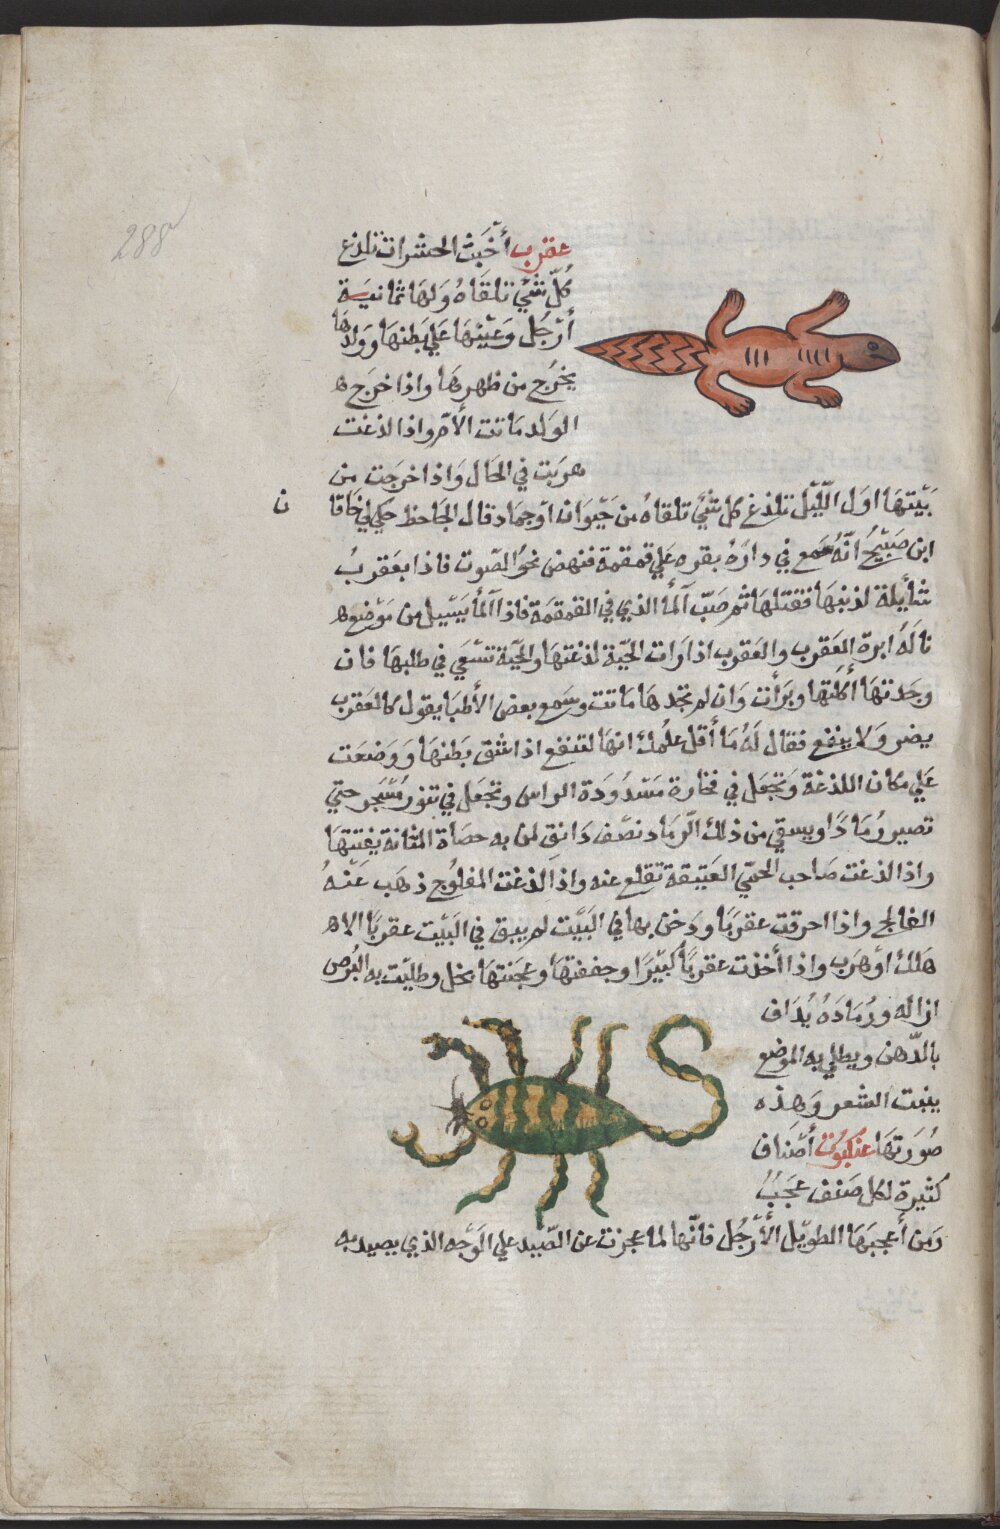 288
عقرب أخبث الحشرات تلدغ
كُلّ شئ تلقاهُ وَلها ثمانيَة
أرْجُل وَعَيْنهَا عَلي بَطنهَا وَوَلدهَا
يخرُج من ظهرهَا واذا خرَج ه
الوَلد مَاتت الأمّ واذا لذغت
هربَت في الحَال وَاذا خرجَت من
بَيْتهَا اول اللّيْل تلذغ كل شئ تلقاهُ من حَيوَان اوجمَاد قال الجَاحظ حكي لي خاقا ن
ابن صَبيْحُ انّهُ سَمع في دارهُ نقره عَلي قمقمة فنهض نحوُ الصّوت فاذا بعَقربُ
شايلة لذنبهَا فقتلهَا ثم صَبّ آلمأ الذي في القمقمَة فاذا آلمأ يَسْيل من مَوْضع ه
نالَهُ ابرة العَقرب والعَقرب اذا رَات الحيّة لذغتهَا والحيّة تسْعَي في طلبهَا فان
وجَدتهَا أكلتهَا وبَرأت وَان لم تجدهَا مَاتت وسَمع بعض الأطبَا يقول كالعَقرب
يضر وَلا ينفع فقال لهُ مَا أقل علمك انهَا لتنفع اذا شق بَطنهَا وَوَضعَت
عَلي مكان اللذغة وَتجعَل في فخارة مَسْدُودَة الراس وتجعَل في تنور مُسَّجر حَتي
تصير رُمَادًا ويسقي من ذلك الرّمَاد نصْف دَانق لمن به حصَاة المثَانة يفتتهَا
واذا لذغت صَاحب الحمّي العَتيقة تقلع عنه واذا لذغت المفلوُج ذهَب عَنْهُ
الفالج واذا احرقت عقربَا ودَخن بهَا في البَيْت لم يبق في البَيْت عقربَا الا ه
هَلك اوْ هرَب واذا أخذت عقربَاً كبيْرًا وجففتهَا وعجَنتهَا بخل وطليْت به البُرص
ازاله ورُمَادَهُ يُدَاف
بالدّهن ويطلي به الموضع
ينبت الشعر وَهذه
صُوَرتهَا عنكبوُت أصْنَاف
كثيرة لكل صَنف عجَبُ
وَمن أعجبَهَا الطويْل الأرْجُل فانّها لما عجزت عن الصّيد علي الوَجْه الذي يصيد به